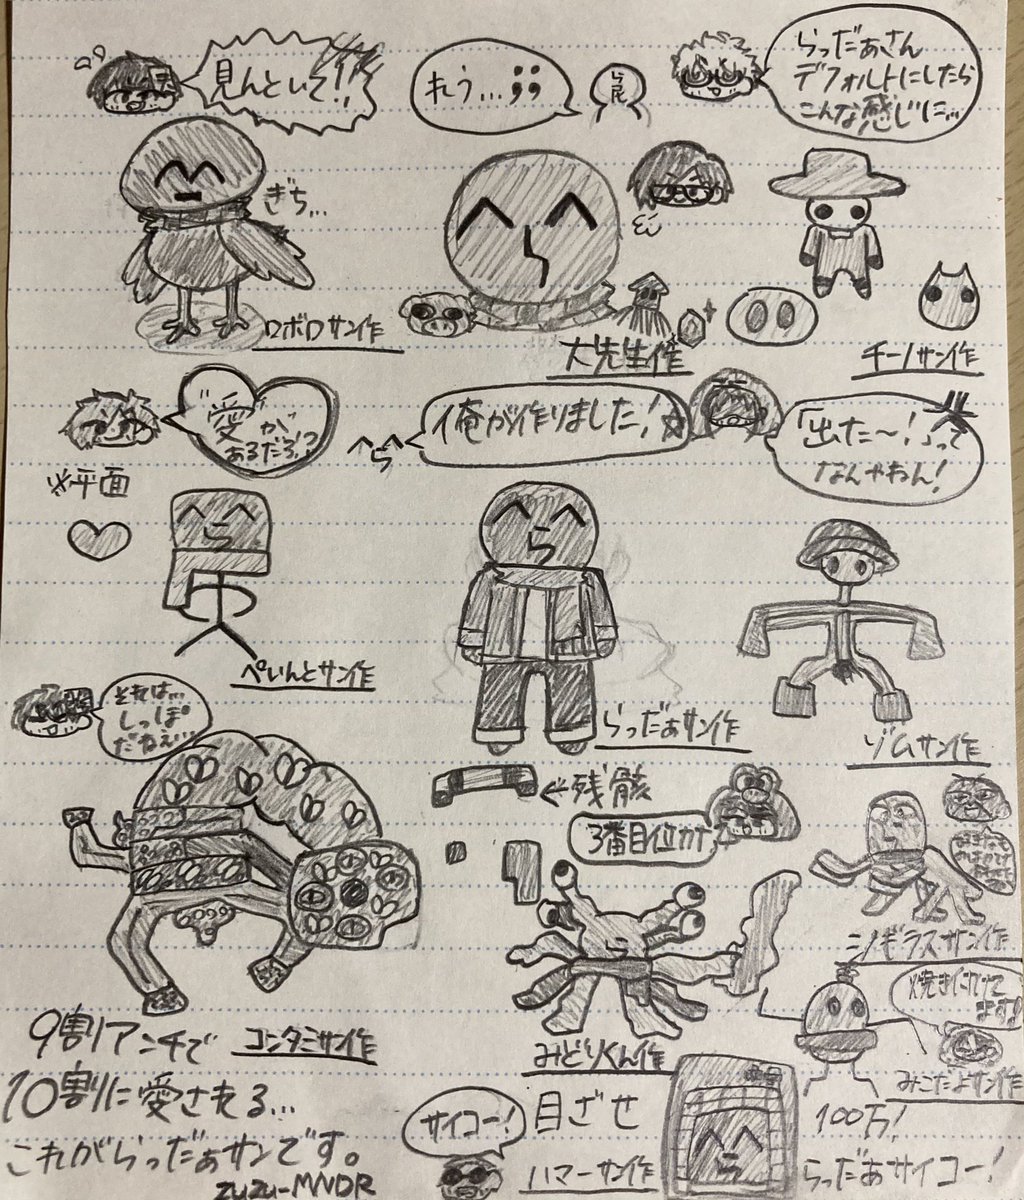 見んといて!!
れう…;;
らっだぁさん
デフォルトにしたら
こんな感じに…
ぎち…
ロボロサン作
大先生作
チーノサン作
"愛"が
あるだろ?
俺が作りました!☆
「出た〜!」って
なんやねん!
※平面
ら
ぺいんとサン作
ら
らっだぁサン作
ゾムサン作
それは…
しっぽ
だねぇ…
←残骸
3番目位カナ
コンタミサン作
みどりくん作
シノギラスサン作
焼き付けて
ますよ
みこだよサン作
9割アンチで
10割に愛される…
これがらっだぁサンです。
zuzu-MNDR
サイコー!
目ざせ
100万!
ハマーサン作
らっだぁサイコー!